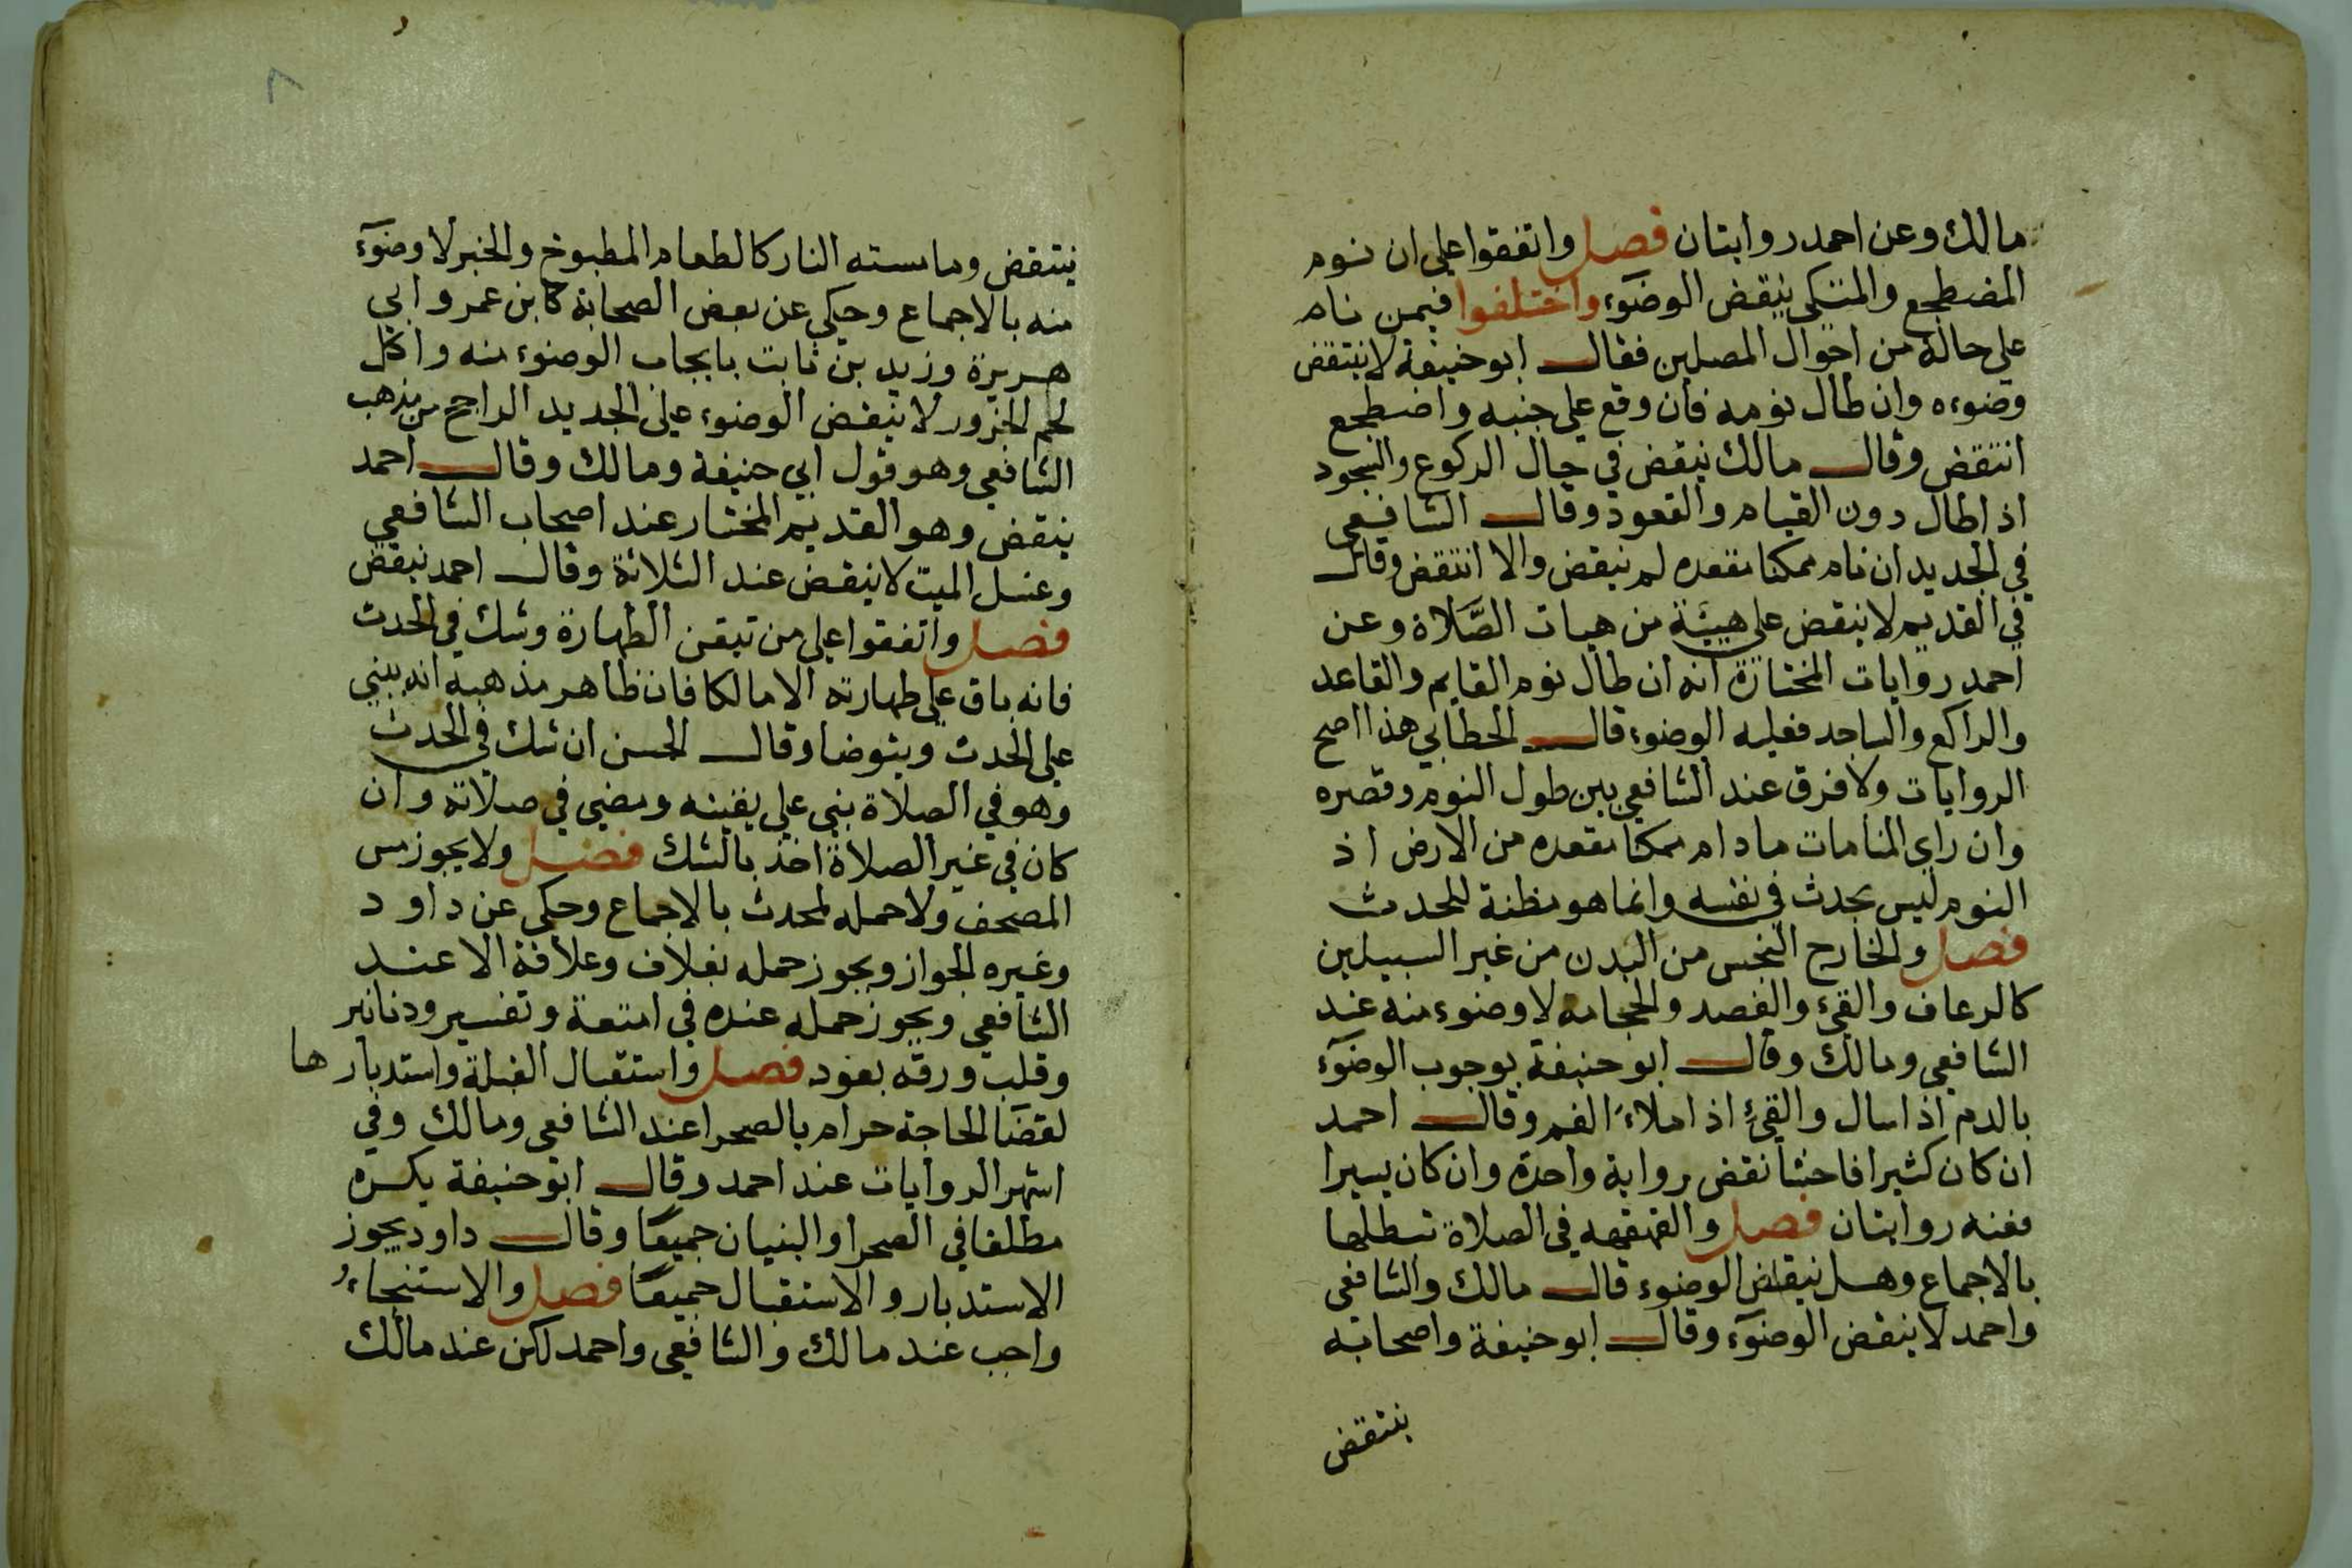 مالك وعن احمد روايتان فصل واتفقوا على ان نوم
المضطجع والمتكي ينقض الوضوء واختلفوا فيمن نام
على حالة من احوال المصلين فقال ابو حنيفة لا ينتقض
وضوءه وان طال نومه فان وقع على جنبه واضطجع
انتقض وقال مالك ينقض في حال الركوع والسجود
اذا طال دون القيام والقعود وقال الشافعي
في الجديد ان نام ممكنا مقعده لم ينقض والا انتقض وقال
في القديم لا ينقض على هيئة من هيات الصَّلاة وعن
احمد روايات المختارة انه ان طال نوم القايم والقاعد
والراكع والساجد فعليه الوضوء قال الخطابي هذا اصح
الروايات ولا فرق عند الشافعي بين طول النوم وقصره
وان راى المنامات ما دام ممكنا مقعده من الارض اذ
النوم ليس بحدث في نفسه وانما هو مظنة للحدث
فصل والخارج النجس من البدن من غير السبيلين
كالرعاف والقيء والفصد والحجامة لا وضوء منه عند
الشافعي ومالك وقال ابو حنيفة بوجوب الوضوء
بالدم اذا سال والقيءِ اذا ملاءَ الفم وقال احمد
ان كان كثيرا فاحشا نقض رواية واحدة وان كان يسيرا
ففنه روايتان فصل والقهقهه في الصلاة تبطلها
بالاجماع وهل ينقض الوضوء قال مالك والشافعى
واحمد لا ينقض الوضوء وقال ابو حنيفة واصحابه
ينتقض
٨
ينتقض وما مسته النار كالطعام المطبوخ والخبز لا وضوء
منه بالاجماع وحكي عن بعض الصحابة كابن عمر وابي
هريرة وزيد بن ثابت بايجاب الوضوء منه واكل
لحم الجزور لا ينقض الوضوء على الجديد الراجح من مذهب
الشافعي وهو قول ابي حنيفة ومالك وقال احمد
ينقض وهو القديم المختار عند اصحاب الشافعي
وغسل الميت لا ينقض عند الثلاثة وقال احمد ينقض
فصل واتفقوا على من تيقن الطهارة وشك في الحدث
فانه باق على طهارته الا مالكا فان ظاهر مذهبه انه يبني
على الحدث ويتوضا وقال الحسن ان شك في الحدث
وهو في الصلاة بنى على يقينه ومضى في صلاته وان
كان في غير الصلاة اخذ بالشك فصل ولا يجوز مس
المصحف ولا حمله لمحدث بالاجماع وحكى عن داود
وغيره الجواز ويجوز حمله بغلاف وعلاقة الا عند
الشافعي ويجوز حمله عنده في امتعة وتفسير ودنانير
وقلب ورقه بعود فصل واستقبال القبلة واستدبارها
لقضا الحاجة حرام بالصحرا عند الشافعى ومالك وفي
اشهر الروايات عند احمد وقال ابو حنيفة يكره
مطلقا في الصحرا والبنيان جميعًا وقال داود يجوز
الاستدبار والاستقبال جميعًا فصل والاستنجاءُ
واجب عند مالك والشافعى واحمد لكن عند مالك